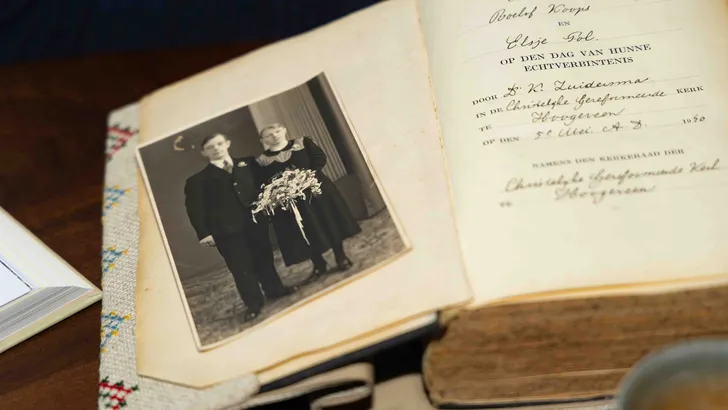 Roelof Koops
EN
Elsje Pol.
OP DEN DAG VAN HUNNE
ECHTVERBINTENIS
DOOR Ds K. Zuidersma
IN DE Christelyke Gereformeerde KERK
TE Hoogeveen
OP DEN 5e Mei A.D. 1940
NAMENS DEN KERKERAAD DER
Christelyke Gereformeerde Kerk
TE Hoogeveen